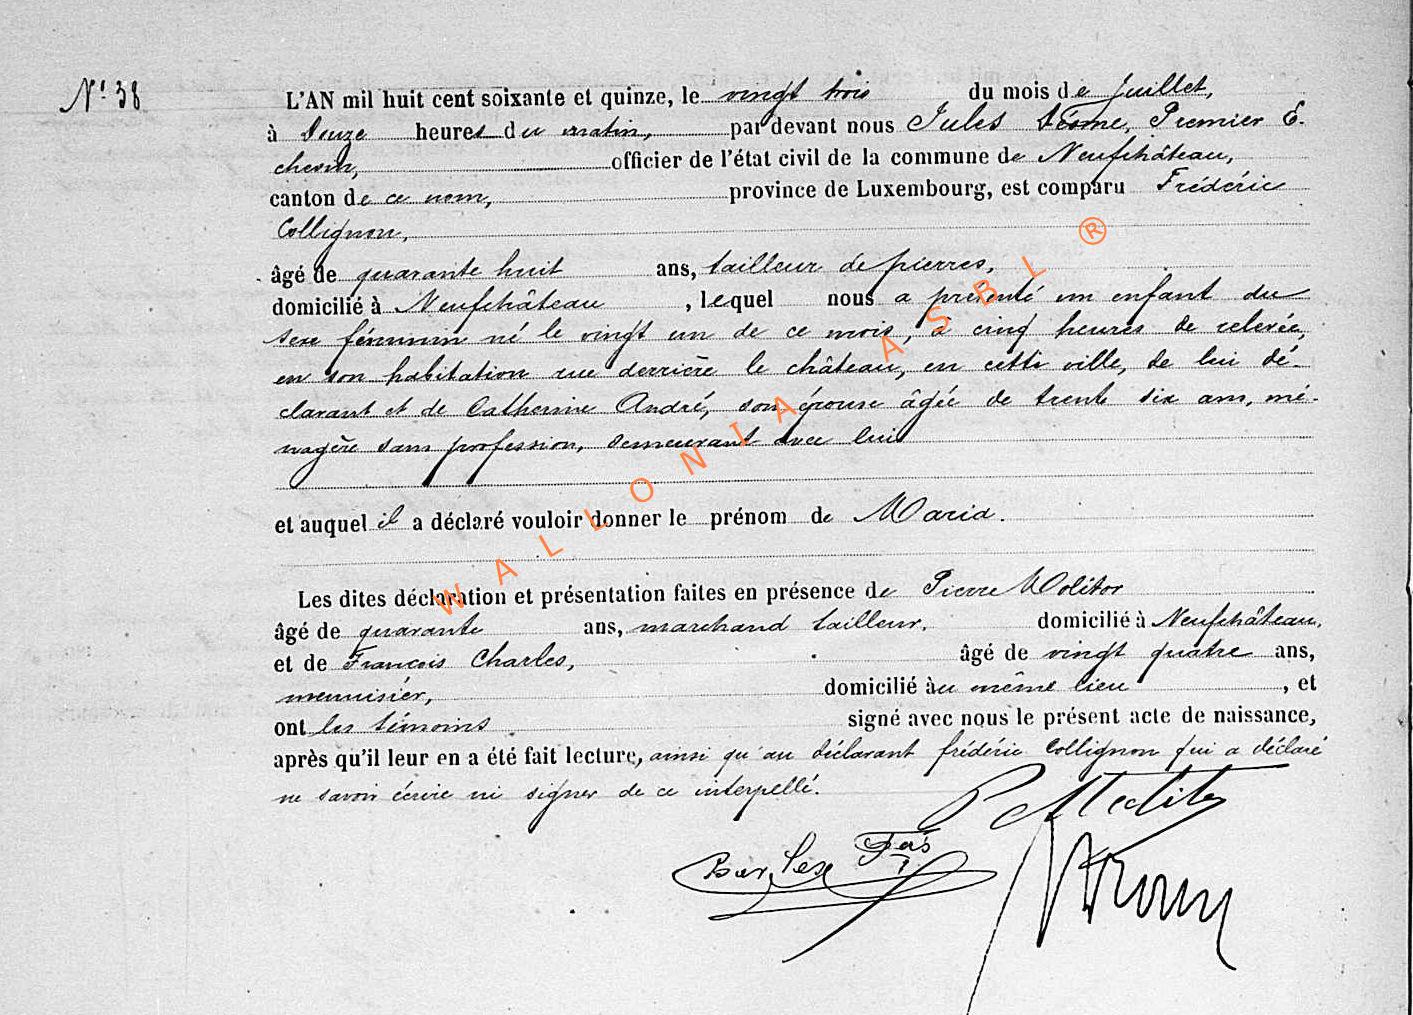 Nº 38
L'AN mil huit cent soixante et quinze, le vingt trois du mois de Juillet,
à Douze heures du matin, par devant nous Jules Premier E-
chevin, officier de l'état civil de la commune de Neufchâteau,
canton de ce nom, province de Luxembourg, est comparu Frédéric
Collignon,
âgé de quarante huit ans, tailleur de pierres,
domicilié à Neufchâteau, lequel nous a présenté un enfant du
sexe féminin né le vingt un de ce mois, à cinq heures de relevée,
en son habitation rue derrière le château, en cette ville, de lui dé-
clarant et de Catherine André, son épouse âgée de trente six ans, mé-
nagère sans profession, demeurant avec lui
et auquel il a déclaré vouloir donner le prénom de Maria.
Les dites déclaration et présentation faites en présence de Pierre Molitor
âgé de quarante ans, marchand tailleur, domicilié à Neufchâteau,
et de François Charles, âgé de vingt quatre ans,
menuisier, domicilié au même lieu, et
ont les témoins signé avec nous le présent acte de naissance,
après qu'il leur en a été fait lecture, ainsi qu'au déclarant frédéric Collignon qui a déclaré
ne savoir écrire ni signer de ce interpellé.
WALLONIA ASBL ®